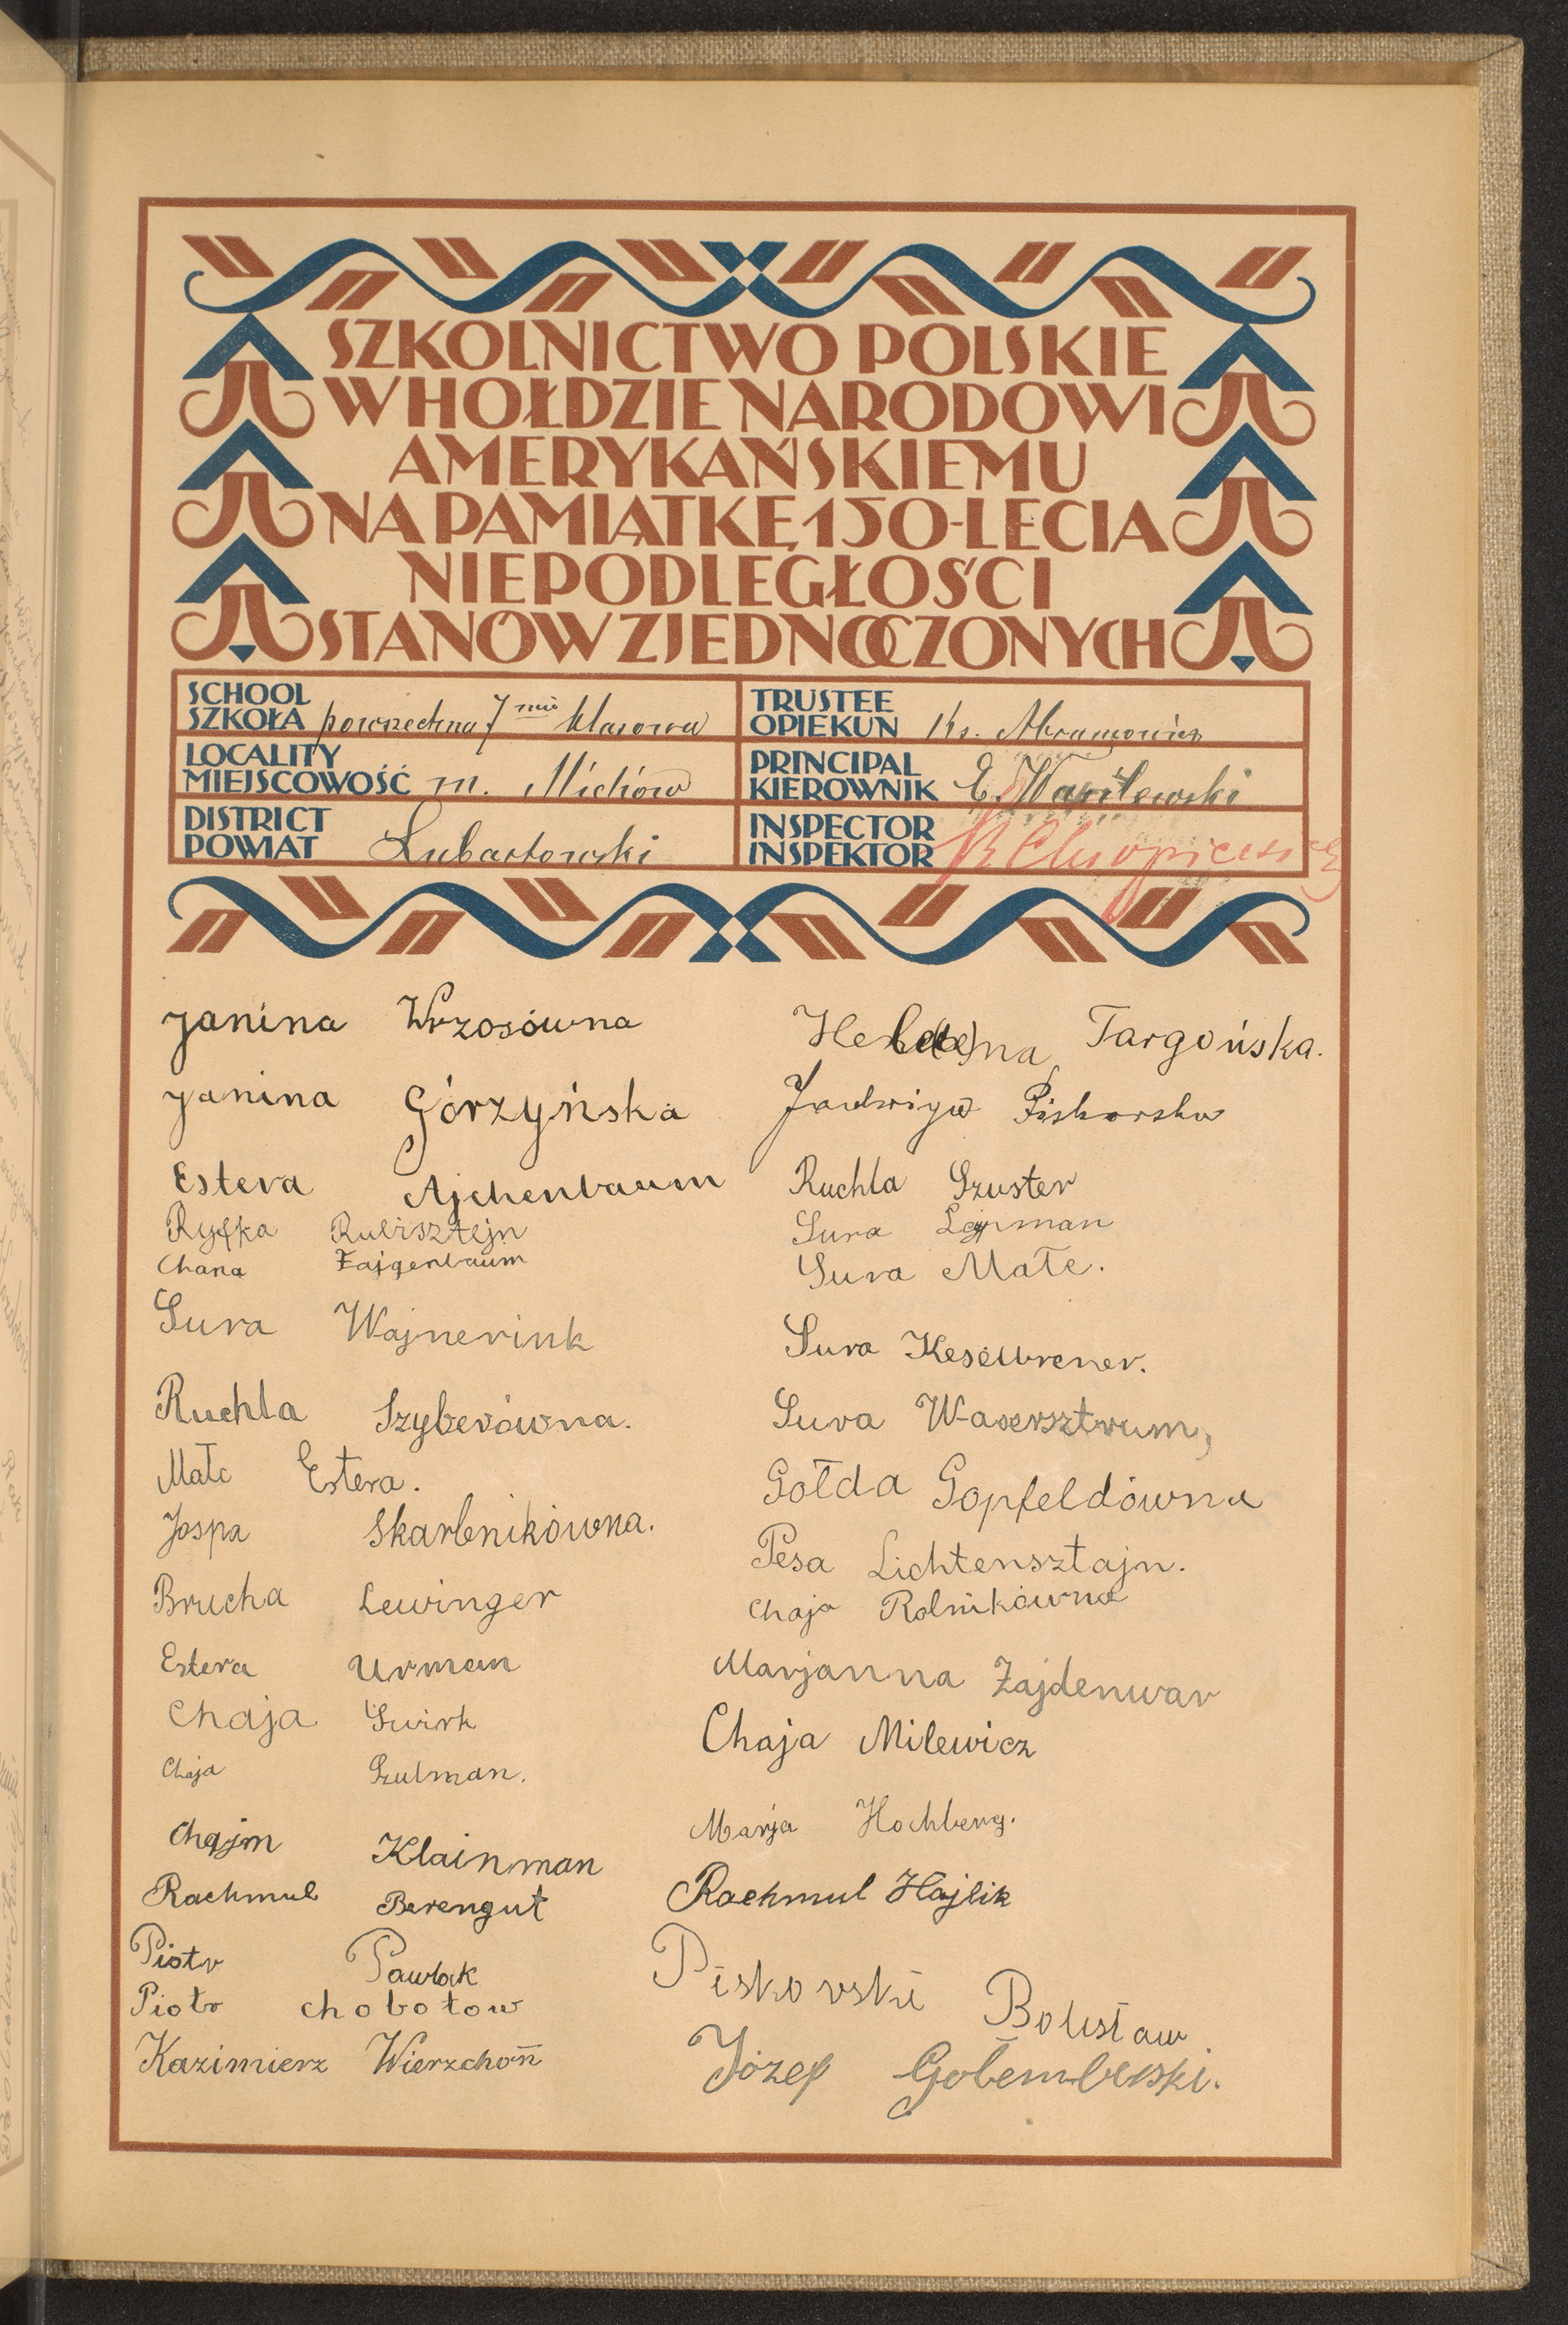 SZKOLNICTWO POLSKIE
W HOŁDZIE NARODOWI
AMERYKAŃSKIEMU
NA PAMIĄTKĘ 150-LECIA
NIEPODLEGŁOŚCI
STANÓW ZJEDNOCZONYCH
SCHOOL
SZKOŁA powszechna 7 mio klasowa
LOCALITY
MIEJSCOWOŚĆ m. Michów
DISTRICT
POWIAT Lubartowski
TRUSTEE
OPIEKUN Ks. Abramowicz
PRINCIPAL
KIEROWNIK E. Wasilewski
INSPECTOR
INSPEKTOR
Janina Wrzosówna
Janina Górzyńska
Estera Ajchenbaum
Ryfka Rubisztejn
Chana Fajgenbaum
Sura Wajnerink
Ruchla Szyberówna.
Małc Estera.
Jospa Skarbnikówna.
Brucha Lewinger
Estera Urman
Chaja Swirk
Chaja Szulman.
Chajm Klainman
Rachmul Berengut
Piotr Pawlak
Piotr Chobotow
Kazimierz Wierzchoń
Targońska.
Jadwiga Piskorska
Ruchla Szuster
Sura
Sura Małc.
Sura Keselbrener.
Sura Wasersztrum,
Gołda Gopfeldówna
Pesa Lichtensztajn.
Chaja Rolnikówna
Marjanna Zajdenwar
Chaja Milewicz
Marja Hochberg.
Rachmul Hajlik
Piskorski Bolesław
Józef Gołembewski.